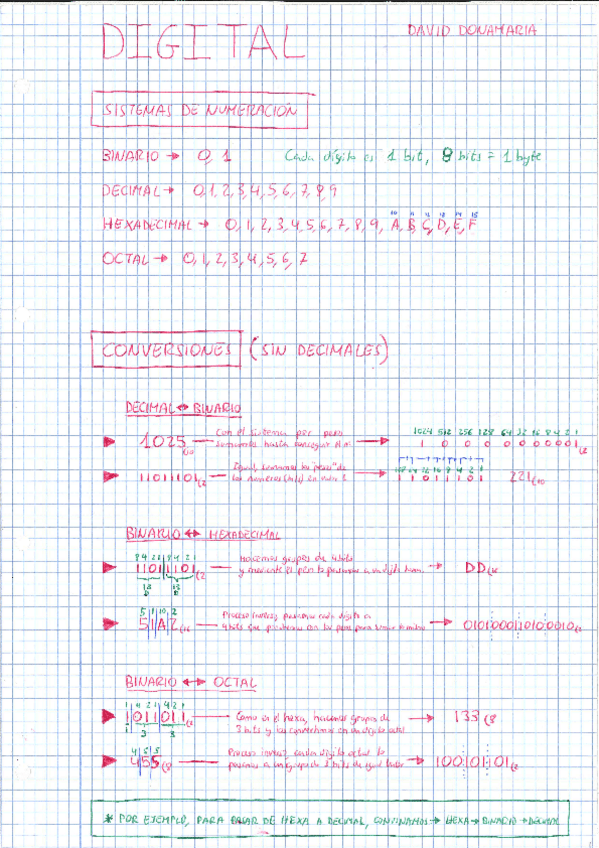 DIGITAL
DAVID DONAMARIA
SISTEMAS DE NUMERACIÓN
BINARIO → 0, 1 Cada dígito es 1 bit, 8 bits = 1 byte
DECIMAL → 0,1,2,3,4,5,6,7,8,9
HEXADECIMAL → 0,1,2,3,4,5,6,7,8,9, A, B, C, D, E, F
OCTAL → 0,1,2,3,4,5,6,7
CONVERSIONES (SIN DECIMALES)
DECIMAL ↔ BINARIO
1025(10 — Con el sistema por peso → 1024 512 256 128 64 32 16 8 4 2 1
sumamos hasta conseguir el nº
1 0 0 0 0 0 0 0 0 0 1(2
11011101(2 — Igual, sumamos los "pesos" de → 128 64 32 16 8 4 2 1
los números (bits)
1 1 0 1 1 1 0 1 221(10
BINARIO ↔ HEXADECIMAL
8 4 2 1 8 4 2 1
11011101(2 — Hacemos grupos de 4 bits → DD(16
13 13
D D
5 1 10 2
51A2(16 — Proceso inverso, pasamos cada dígito a → 0101000110100010(2
BINARIO ↔ OCTAL
1 4 2 1 4 2 1
1011011(2 — Como en el hexa, hacemos grupos de → 133(8
3 bits y los convertimos en un dígito octal
1 3 3
4 5 5
455(8 — Proceso inverso, cada dígito octal lo → 100101101(2
pasamos a un grupo de 3 bits de igual valor
* POR EJEMPLO, PARA PASAR DE HEXA A DECIMAL, COMBINAMOS → HEXA → BINARIO → DECIMAL